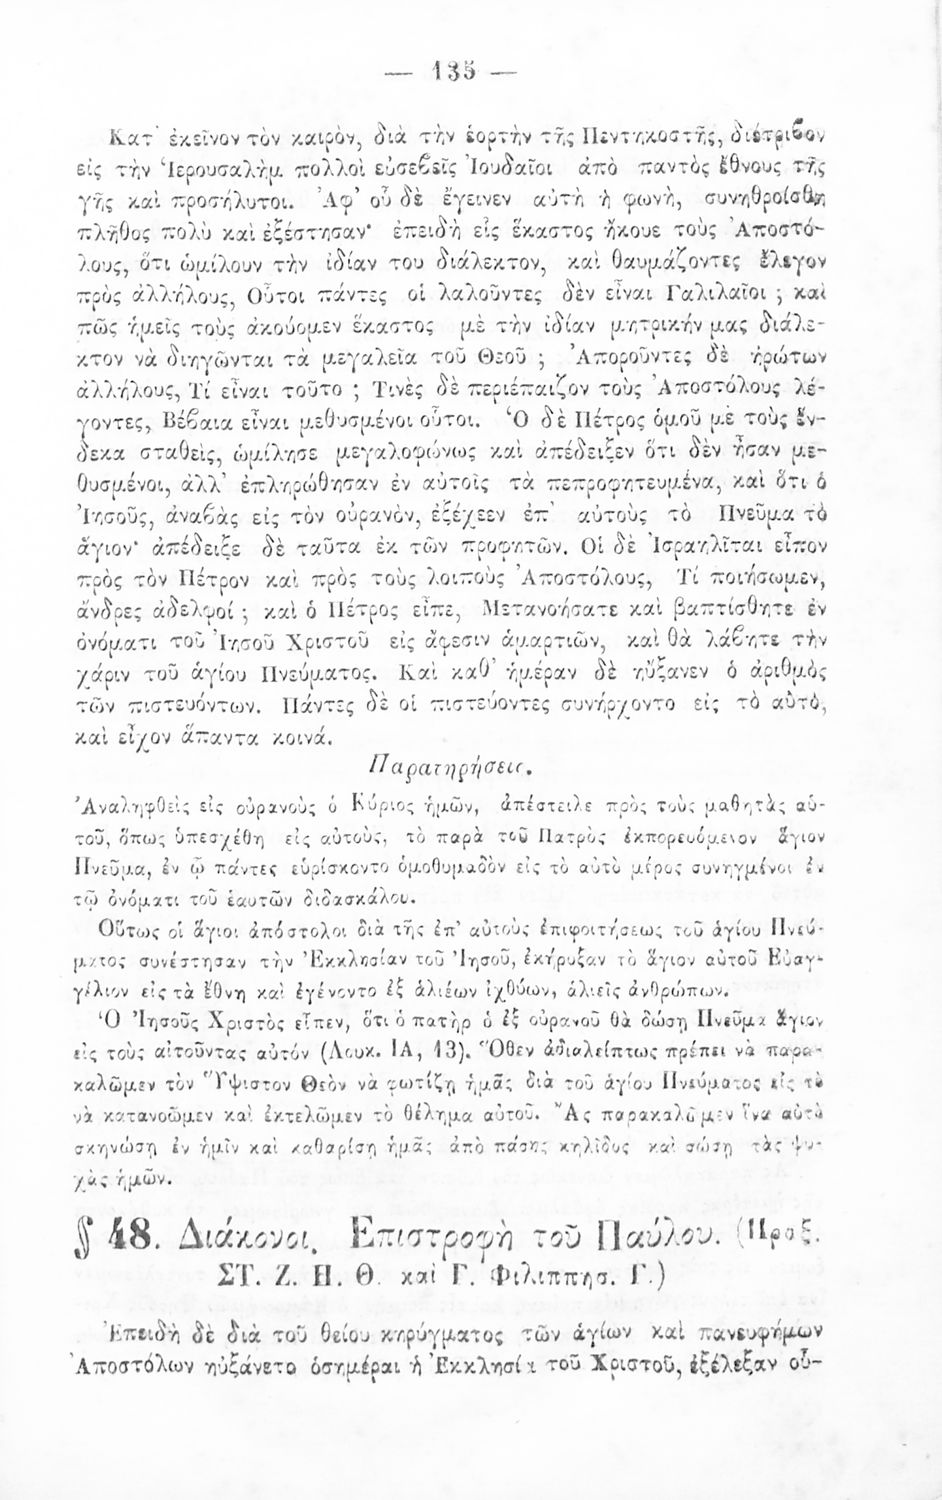 — 135 —
Κατ᾽ ἐκεῖνον τὸν καιρὸν, διὰ τὴν ἑορτὴν τῆς Πεντηκοστῆς, διέτριβον
εἰς τὴν Ἱερουσαλὴμ πολλοὶ εὐσεβεῖς Ἰουδαῖοι ἀπὸ παντὸς ἔθνους τῆς
γῆς καὶ προσήλυτοι. Ἀφ᾽ οὗ δὲ ἔγεινεν αὐτὴ ἡ φωνὴ, συνηθροίσθη
πλῆθος πολὺ καὶ ἐξέστησαν· ἐπειδὴ εἷς ἕκαστος ἤκουε τοὺς Ἀποστό-
λους, ὅτι ὡμίλουν τὴν ἰδίαν του διάλεκτον, καὶ θαυμάζοντες ἔλεγον
πρὸς ἀλλήλους, Οὗτοι πάντες οἱ λαλοῦντες δὲν εἶναι Γαλιλαῖοι ; καὶ
πῶς ἡμεῖς τοὺς ἀκούομεν ἕκαστος μὲ τὴν ἰδίαν μητρικήν μας διάλε-
κτον νὰ διηγῶνται τὰ μεγαλεῖα τοῦ Θεοῦ ; Ἀποροῦντες δὲ ἠρώτων
ἀλλήλους, Τί εἶναι τοῦτο ; Τινὲς δὲ περιέπαιζον τοὺς Ἀποστόλους λέ-
γοντες, Βέβαια εἶναι μεθυσμένοι οὗτοι. Ὁ δὲ Πέτρος ὁμοῦ μὲ τοὺς ἕν-
δεκα σταθεὶς, ὡμίλησε μεγαλοφώνως καὶ ἀπέδειξεν ὅτι δὲν ἦσαν με-
θυσμένοι, ἀλλ᾽ ἐπληρώθησαν ἐν αὐτοῖς τὰ πεπροφητευμένα, καὶ ὅτι ὁ
Ἰησοῦς, ἀναβὰς εἰς τὸν οὐρανὸν, ἐξέχεεν ἐπ᾽ αὐτοὺς τὸ Πνεῦμα τὸ
ἅγιον· ἀπέδειξε δὲ ταῦτα ἐκ τῶν προφητῶν. Οἱ δὲ Ἰσραηλῖται εἶπον
πρὸς τὸν Πέτρον καὶ πρὸς τοὺς λοιποὺς Ἀποστόλους, Τί ποιήσωμεν,
ἄνδρες ἀδελφοί ; καὶ ὁ Πέτρος εἶπε, Μετανοήσατε καὶ βαπτίσθητε ἐν
ὀνόματι τοῦ Ἰησοῦ Χριστοῦ εἰς ἄφεσιν ἁμαρτιῶν, καὶ θὰ λάβητε τὴν
χάριν τοῦ ἁγίου Πνεύματος. Καὶ καθ᾽ ἡμέραν δὲ ηὔξανεν ὁ ἀριθμὸς
τῶν πιστευόντων. Πάντες δὲ οἱ πιστεύοντες συνήρχοντο εἰς τὸ αὐτὸ,
καὶ εἶχον ἅπαντα κοινά.
Παρατηρήσεις.
Ἀναληφθεὶς εἰς οὐρανοὺς ὁ Κύριος ἡμῶν, ἀπέστειλε πρὸς τοὺς μαθητὰς αὐ-
τοῦ, ὅπως ὑπεσχέθη εἰς αὐτοὺς, τὸ παρὰ τοῦ Πατρὸς ἐκπορευόμενον ἅγιον
Πνεῦμα, ἐν ᾧ πάντες εὑρίσκοντο ὁμοθυμαδὸν εἰς τὸ αὐτὸ μέρος συνηγμένοι ἐν
τῷ ὀνόματι τοῦ ἑαυτῶν διδασκάλου.
Οὕτως οἱ ἅγιοι ἀπόστολοι διὰ τῆς ἐπ᾽ αὐτοὺς ἐπιφοιτήσεως τοῦ ἁγίου Πνεύ-
ματος συνέστησαν τὴν Ἐκκλησίαν τοῦ Ἰησοῦ, ἐκήρυξαν τὸ ἅγιον αὐτοῦ Εὐαγ-
γέλιον εἰς τὰ ἔθνη καὶ ἐγένοντο ἐξ ἁλιέων ἰχθύων, ἁλιεῖς ἀνθρώπων.
Ὁ Ἰησοῦς Χριστὸς εἶπεν, ὅτι ὁ πατὴρ ὁ ἐξ οὐρανοῦ θὰ δώσῃ Πνεῦμα ἅγιον
εἰς τοὺς αἰτοῦντας αὐτόν (Λουκ. ΙΑ, 13). Ὅθεν ἀδιαλείπτως πρέπει νὰ παρα-
καλῶμεν τὸν Ὕψιστον Θεὸν νὰ φωτίζῃ ἡμᾶς διὰ τοῦ ἁγίου Πνεύματος εἰς τὸ
νὰ κατανοῶμεν καὶ ἐκτελῶμεν τὸ θέλημα αὐτοῦ. Ἂς παρακαλῶμεν ἵνα αὐτὸ
σκηνώσῃ ἐν ἡμῖν καὶ καθαρίσῃ ἡμᾶς ἀπὸ πάσης κηλῖδος καὶ σώσῃ τὰς ψυ-
χὰς ἡμῶν.
§ 48. Διάκονοι. Ἐπιστροφὴ τοῦ Παύλου. (Πραξ.
ΣΤ. Ζ. Η. Θ. καὶ Γ. Φιλιππησ. Γ.)
Ἐπειδὴ δὲ διὰ τοῦ θείου κηρύγματος τῶν ἁγίων καὶ πανευφήμων
Ἀποστόλων ηὐξάνετο ὁσημέραι ἡ Ἐκκλησία τοῦ Χριστοῦ, ἐξέλεξαν οὗ-